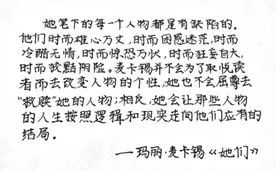 她笔下的每一个人物都是有缺陷的,
他们时而雄心万丈,时而困惑迷茫,时而
冷酷无情,时而惊恐万状,时而狂妄自大,
时而狡黠阴险。麦卡锡并不会为了取悦读
者而去改变人物的个性,她也不会屈尊去
“救赎”她的人物;相反,她会让那些人物
的人生按照逻辑和现实走向他们应有的
结局。
——玛丽·麦卡锡《她们》